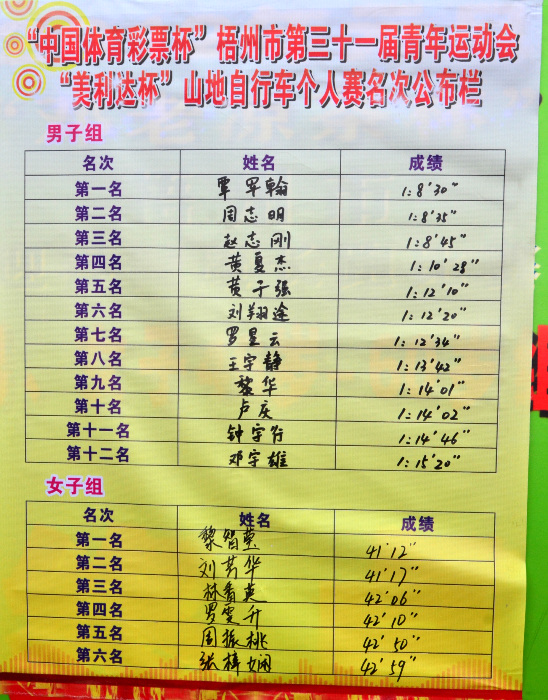 “中国体育彩票杯”梧州市第三十一届青年运动会
“美利达杯”山地自行车个人赛名次公布栏
男子组
名次 姓名 成绩
第一名 覃军翰 1:8'30"
第二名 周志明 1:8'35"
第三名 赵志刚 1:8'45"
第四名 黄夏杰 1:10'28"
第五名 黄子强 1:12'10"
第六名 刘翔途 1:12'20"
第七名 罗星云 1:12'34"
第八名 王宇静 1:13'42"
第九名 黎华 1:14'01"
第十名 卢庆 1:14'02"
第十一名 钟宇行 1:14'46"
第十二名 邓宇雄 1:15'20"
女子组
名次 姓名 成绩
第一名 黎智莹 41'12"
第二名 刘芸华 41'17"
第三名 林香英 42'06"
第四名 罗雯升 42'10"
第五名 周振桃 42'50"
第六名 张梓娴 42'59"